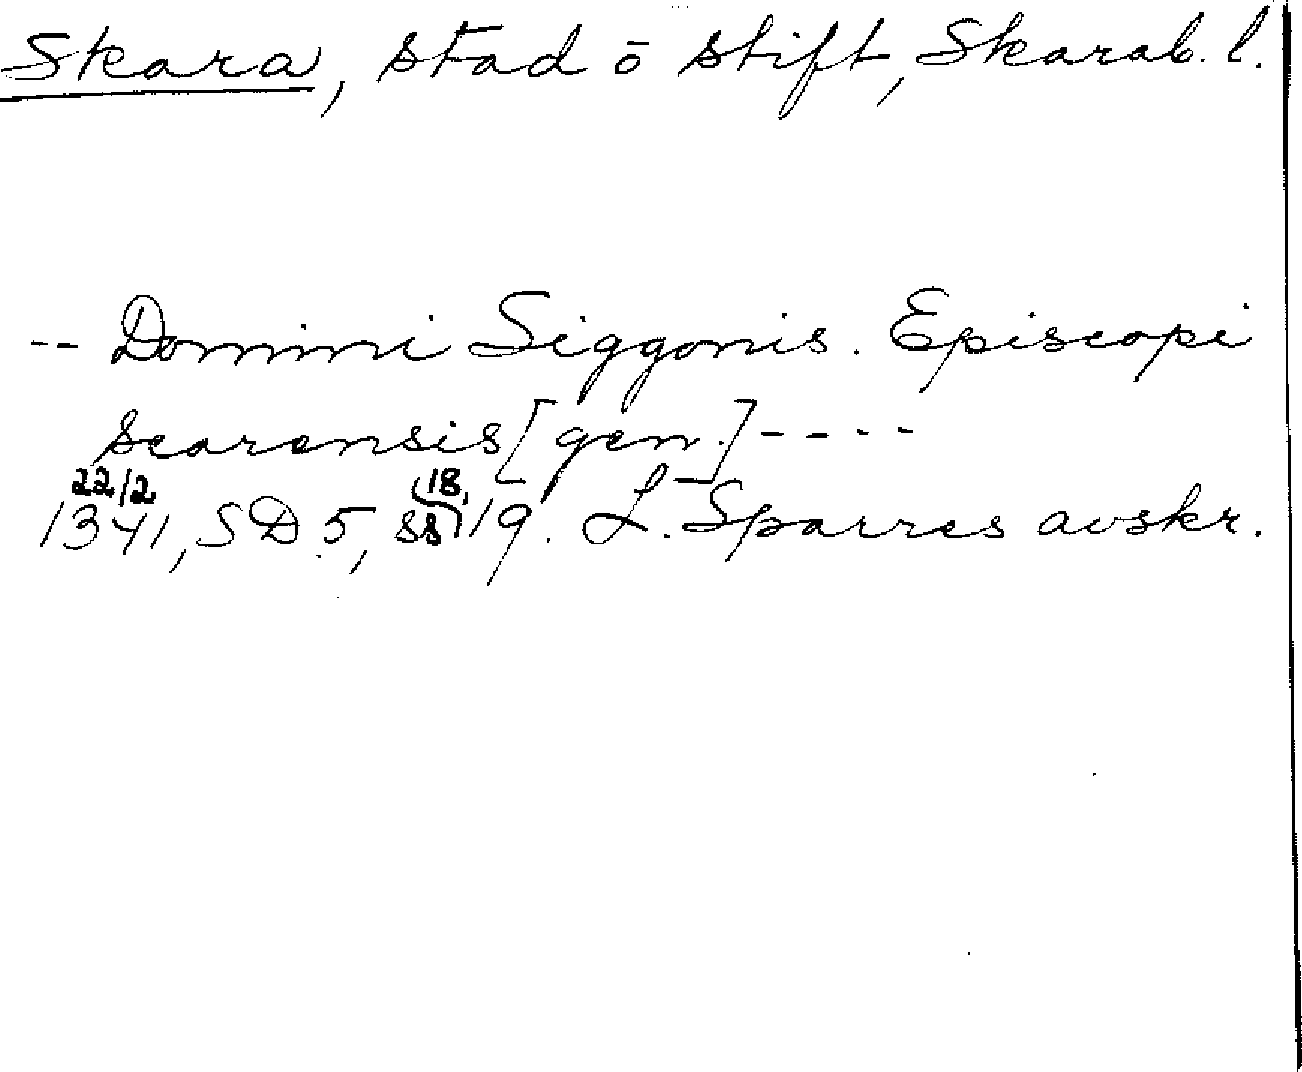 Skara, stad ō stift, Skarab. l.
-- Domini Siggonis. Episcopi
scarensis [gen.] ----
22/2 18,
1341, SD 5, ss 19. L. Sparres avskr.